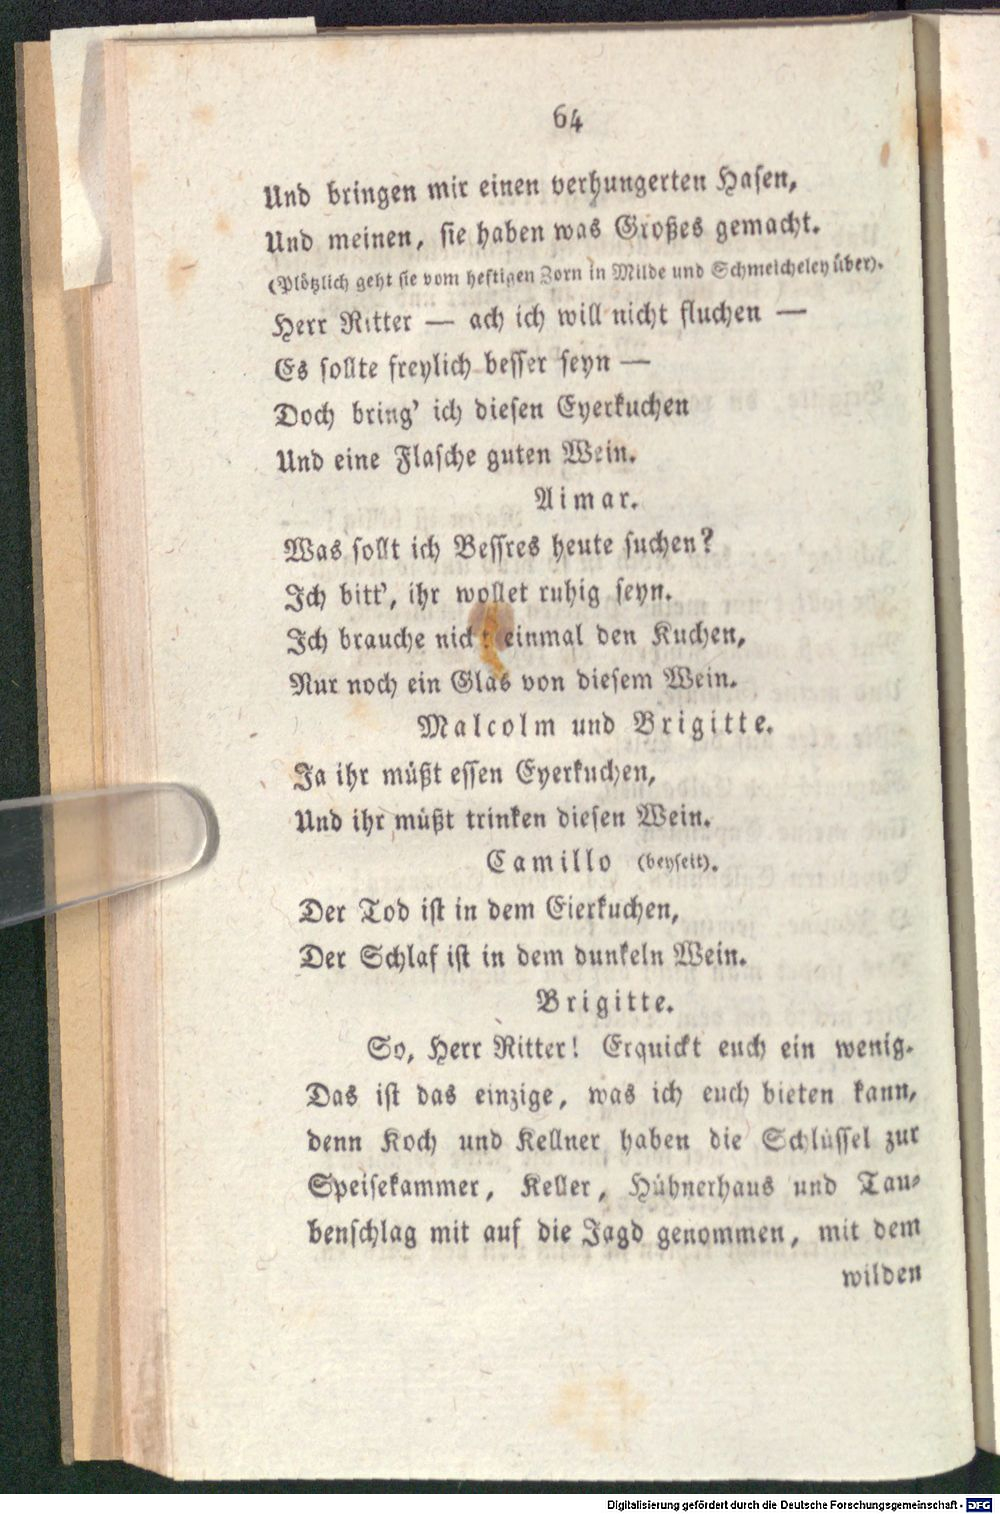 64
Und bringen mir einen verhungerten Hasen,
Und meinen, sie haben was Großes gemacht.
(Plötzlich geht sie vom heftigen Zorn in Milde und Schmeicheley über).
Herr Ritter — ach ich will nicht fluchen —
Es sollte freylich besser seyn —
Doch bring' ich diesen Eyerkuchen
Und eine Flasche guten Wein.
Aimar.
Was sollt ich Bessres heute suchen?
Ich bitt', ihr wollet ruhig seyn.
Ich brauche nicht einmal den Kuchen,
Nur noch ein Glas von diesem Wein.
Malcolm und Brigitte.
Ja ihr müßt essen Eyerkuchen,
Und ihr müßt trinken diesen Wein.
Camillo (beyseit).
Der Tod ist in dem Eierkuchen,
Der Schlaf ist in dem dunkeln Wein.
Brigitte.
So, Herr Ritter! Erquickt euch ein wenig.
Das ist das einzige, was ich euch bieten kann,
denn Koch und Kellner haben die Schlüssel zur
Speisekammer, Keller, Hühnerhaus und Tau-
benschlag mit auf die Jagd genommen, mit dem
wilden
Digitalisierung gefördert durch die Deutsche Forschungsgemeinschaft - DFG